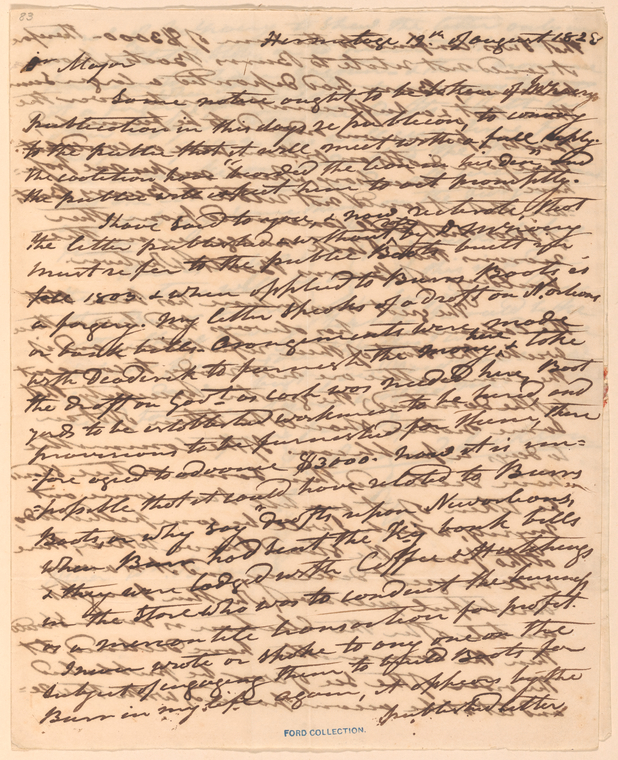 83
Hermitage 13th of august 1828
Dr Major
Some notice ought to be taken of
publication in this days republican, to convey
to the public that it will meet with a full reply
the quotation has "bearded the lion in his den" and
the public will expect him to act promptly.
I have said to you, & now reiterate, that
the letter published without date by
must refer to the public Boats built in
fall 1803 & when applied to Burrs Boats is
a forgery. My letter speaks of a draft on N. orleans
or bank bills. arrangements were made
with Deadrick to furnish the money here & take
the draft on Govt as cash was needed here, Boat
yards to be established workmen to be hired, and
provisions to be furnished for them, there
fore aged to advance $3000. now it is im-
possible that it could have related to Burrs
Boats, or why say "drafts upon Neworleans,
when Burr had sent the Ky bank bills
& they were lodged with Coffee & Hutchings
in the Store who was to conduct the business
as a mercantile transaction for profit.
I never wrote or spoke to any one on the
subject of engaging them to build Boats for
Burr in my life again, it appears by the
published letter
FORD COLLECTION.